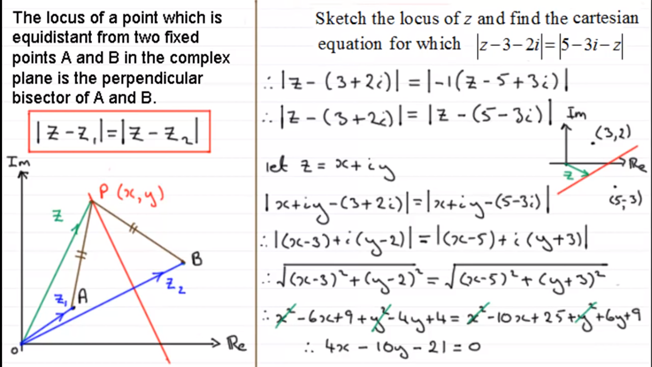 The locus of a point which is
equidistant from two fixed
points A and B in the complex
plane is the perpendicular
bisector of A and B.
|z-z₁|=|z-z₂|
Im
P (x,y)
z
B
A
z₁
z₂
O
Re
Sketch the locus of z and find the cartesian
equation for which |z-3-2i|=|5-3i-z|
∴|z-(3+2i)|=|-1(z-5+3i)|
∴|z-(3+2i)|=|z-(5-3i)|
Im
(3,2)
Re
z
(5,-3)
let z=x+iy
|x+iy-(3+2i)|=|x+iy-(5-3i)|
∴|(x-3)+i(y-2)|=|(x-5)+i(y+3)|
∴√(x-3)²+(y-2)²=√(x-5)²+(y+3)²
∴x²-6x+9+y²-4y+4=x²-10x+25+y²+6y+9
∴ 4x-10y-21=0